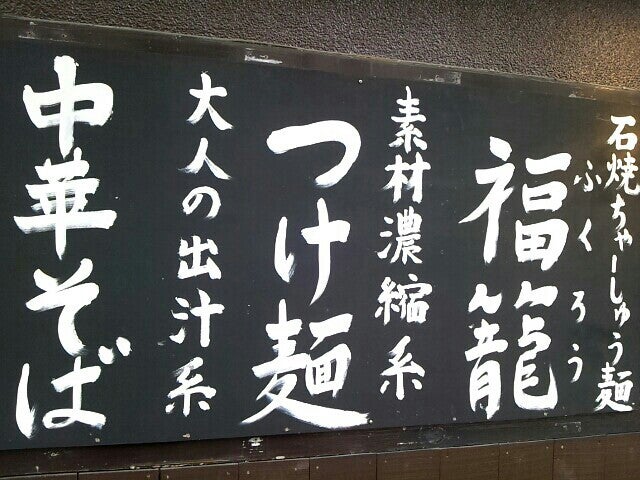 石焼ちゃーしゅう麺
ふくろう
福籠
素材濃縮系
つけ麺
大人の出汁系
中華そば